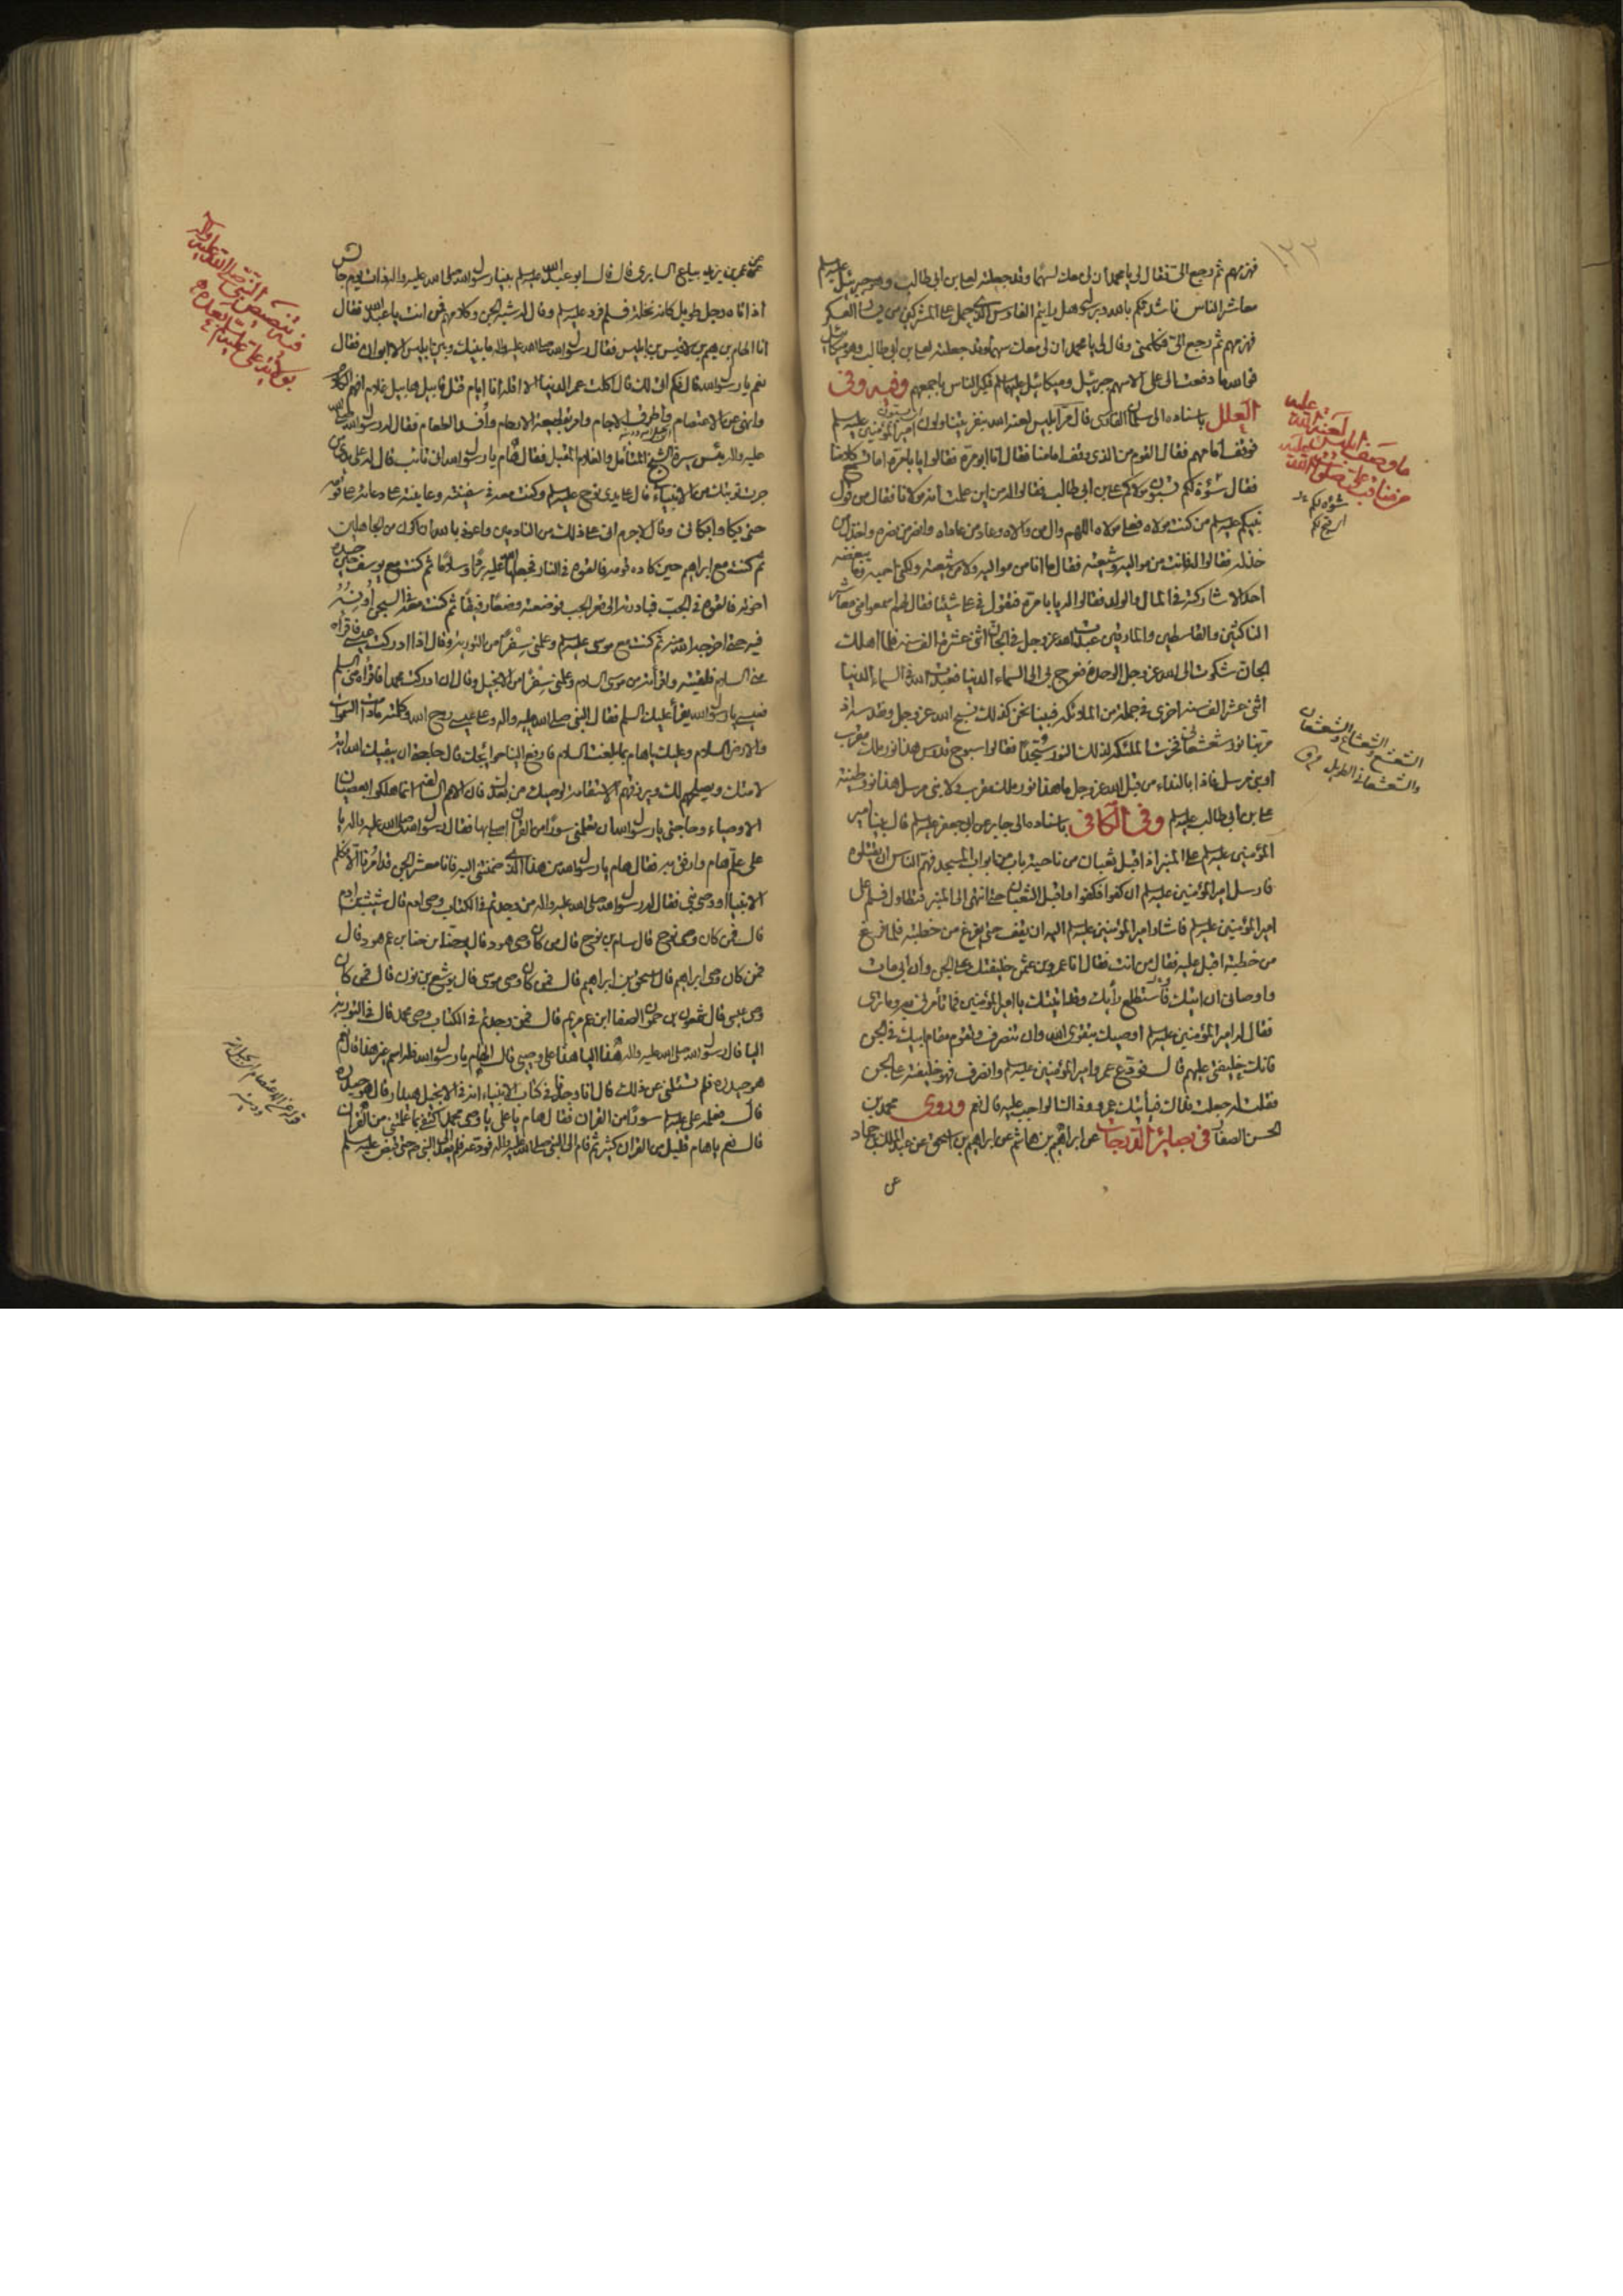 ١٣٣
فهزمهم ثم رجع الى فقال لى يا محمد ان لى معك سهما وقد جعلته لعلى بن ابى طالب وهو جبرئيل عليه السلم
معاشر الناس ناشدتكم بالله وبرسوله هل رايتم الفارس الذى حمل على المشركين من يسار العسكر
فهزمهم ثم رجع الى فكلمنى وقال لى يا محمد ان لى معك سهما وقد جعلته لعلى بن ابى طالب وهو ميكائيل
فوالله ما دفعت الى على الا سهم جبرئيل وميكائيل عليهما السلم فكبر الناس باجمعهم وفيه وفى
العلل باسناده الى سلمان الفارسى قال مر ابليس لعنه الله بنفر يتناولون امير المؤمنين عليه السلم
فوقف امامهم فقال القوم من الذى وقف امامنا فقال انا ابو مرة فقالوا يابا مرة اما تسمع كلامنا
فقال سوءة لكم تسبون مولاكم على بن ابى طالب فقالوا له من اين علمت انه مولانا فقال من قول
نبيكم عليه السلم من كنت مولاه فعلى مولاه اللهم وال من والاه وعاد من عاداه وانصر من نصره واخذل من
خذله فقالوا له فانت من مواليه وشيعته فقال ما انا من مواليه ولا من شيعته ولكنى احبه وما يبغضه
احد الا شاركته فى المال والولد فقالوا له يابا مرة فتقول فى على شيئا فقال لهم اسمعوا منى معاشر
الناكثين والقاسطين والمارقين عبدت الله عز وجل فى الجان اثنى عشرة الف سنة فلما اهلك
الجان شكوت الى الله عز وجل الوحدة فعرج بى الى السماء الدنيا فعبدت الله فى السماء الدنيا
اثنى عشر الف سنة اخرى فى جملة من الملائكة فبينا نحن كذلك نسبح الله عز وجل ونقدسه اذ
مر بنا نور شعشعانى فخرت الملئكة لذلك النور سجدا فقالوا سبوح قدوس هذا نور ملك مقرب
او نبى مرسل فاذا بالنداء من قبل الله عز وجل ما هذا نور ملك مقرب ولا نبى مرسل هذا نور طينة
على بن ابى طالب عليه السلم وفى الكافى باسناده الى جابر عن ابى جعفر عليه السلم قال بينا امير
المؤمنين عليه السلم على المنبر اذ اقبل ثعبان من ناحية باب من ابواب المسجد فهم الناس ان يقتلوه
فارسل امير المؤمنين عليه السلم ان كفوا فكفوا واقبل الثعبان حتى انتهى الى المنبر فتطاول فسلم على
امير المؤمنين عليه السلم فاشار امير المؤمنين عليه السلم اليه ان يقف حتى يفرغ من خطبته فلما فرغ
من خطبته اقبل عليه فقال من انت فقال انا عمرو بن عثمن خليفتك على الجن وان ابى مات
واوصانى ان اتيك فاستطلع رأيك وقد اتيتك يا امير المؤمنين فما تأمرنى به وما ترى
فقال له امير المؤمنين عليه السلم اوصيك بتقوى الله وان تنصرف وتقوم مقام ابيك فى الجن
فانك خليفتى عليهم قال فودع عمرو امير المؤمنين عليه السلم وانصرف فهو خليفته على الجن
فقلت له جعلت فداك فيأتيك عمرو وذاك الواجب عليه قال نعم وروى محمد بن
الحسن الصفار فى بصائر الدرجات عن ابراهيم بن هاشم عن ابراهيم بن اسحق عن عبد الملك بن حماد
عن
ما وصف ابليس لعنه الله عليه
من مناقب على صلوات الله عليه
سوءة لكم اى
اى قبح لكم
الشعشع والشعشاع والشعشعان
والشعشعانى الطويل ق
عن عمر بن يزيد بياع السابرى قال قال ابو عبد الله عليه السلم بينا رسول الله صلى الله عليه واله ذات يوم جالس
اذ اتاه رجل طويل كانه نخلة فسلم فرد عليه السلم وقال له شبه الجن وكلامهم فمن انت يا عبد الله فقال
انا الهام بن هيم بن لاقيس بن ابليس فقال رسول الله صلى الله عليه واله ما بينك وبين ابليس الا ابوان فقال
نعم يا رسول الله قال فكم اتى لك قال اكلت عمر الدنيا الا اقله انا ايام قتل قابيل هابيل غلام افهم الكلام
وانهى عن الاعتصام واطوف الاجام وامر بقطيعة الارحام وافسد الطعام فقال له رسول الله صلى الله
عليه واله بئس سيرة الشيخ المتأمل والغلام المقبل فقال هام يا رسول الله انى تائب قال له على يدى من
جرت توبتك من الانبياء قال على يدى نوح عليه السلم وكنت معه فى سفينته وعاتبته على دعائه على قومه
حتى بكا وابكانى وقال لا جرم انى على ذلك من النادمين واعوذ بالله ان اكون من الجاهلين
ثم كنت مع ابراهيم حين كاده قومه فالقوه فى النار فجعلها الله عليه بردا وسلاما ثم كنت مع يوسف حين حسده
اخوته فالقوه فى الجب فبادرته الى قعر الجب فوضعته وضعا رفيقا ثم كنت معه فى السجن اونسه
فيه حتى اخرجه الله منه ثم كنت مع موسى عليه السلم وعلمنى سفرا من التورية وقال اذا ادركت عيسى فاقراه
منى السلام فلقيته واقرأته من موسى السلام وعلمنى سفرا من الانجيل وقال ان ادركت محمدا فاقراه منى السلم
فعيسى يا رسول الله يقرأ عليك السلم فقال النبى صلى الله عليه واله وعلى عيسى روح الله وكلمته ما دامت السموات
والارض السلام وعليك يا هام بما بلغت السلام فارفع الينا حوائجك قال حاجتى ان يبقيك الله لامتك
لامتك ويصلحهم لك ويرزقهم الاستقامة لوصيك من بعدك فان الامم السالفة انما هلكوا بعصيان
الاوصياء وحاجتى يا رسول الله ان تعلمنى سورا من القران اصلى بها فقال رسول الله صلى الله عليه واله يا
على علم هام وارفق به فقال هام يا رسول الله من هذا الذى ضممتنى اليه فانا معشر الجن قد امرنا الا نكلم
الا نبيا او وصى نبى فقال له رسول الله صلى الله عليه واله من وجدتم فى الكتاب وصى ادم قال شيث بن ادم
قال فمن كان وصى نوح قال سام بن نوح قال من كان وصى هود قال يوحنا بن حنا بن عم هود قال
فمن كان وصى ابراهيم قال اسحق بن ابراهيم قال فمن كان وصى موسى قال يوشع بن نون قال فمن كان
وصى عيسى قال شمعون بن حمون الصفا ابن عم مريم قال فمن وجدتم فى الكتاب وصى محمد قال فى التورية
اليا قال رسول الله صلى الله عليه واله هذا اليا هذا على وصيى قال الهام يا رسول الله فله اسم غير هذا قال نعم
هو حيدرة فلم تسئلنى عن ذلك قال انا وجدنا فى كتاب الانبياء انه فى الانجيل هيدارا قال هو حيدرة
قال فعلمه على عليه السلم سورا من القران فقال هام يا على يا وصى محمد اكتفى بما علمتنى من القران
قال نعم يا هام قليل من القران كثير ثم قام الى النبى صلى الله عليه واله فودعه فلم يعد الى النبى حتى قبض عليه السلم
فى تنصيص النبى صلى الله عليه واله
بولاية على عليه السلم